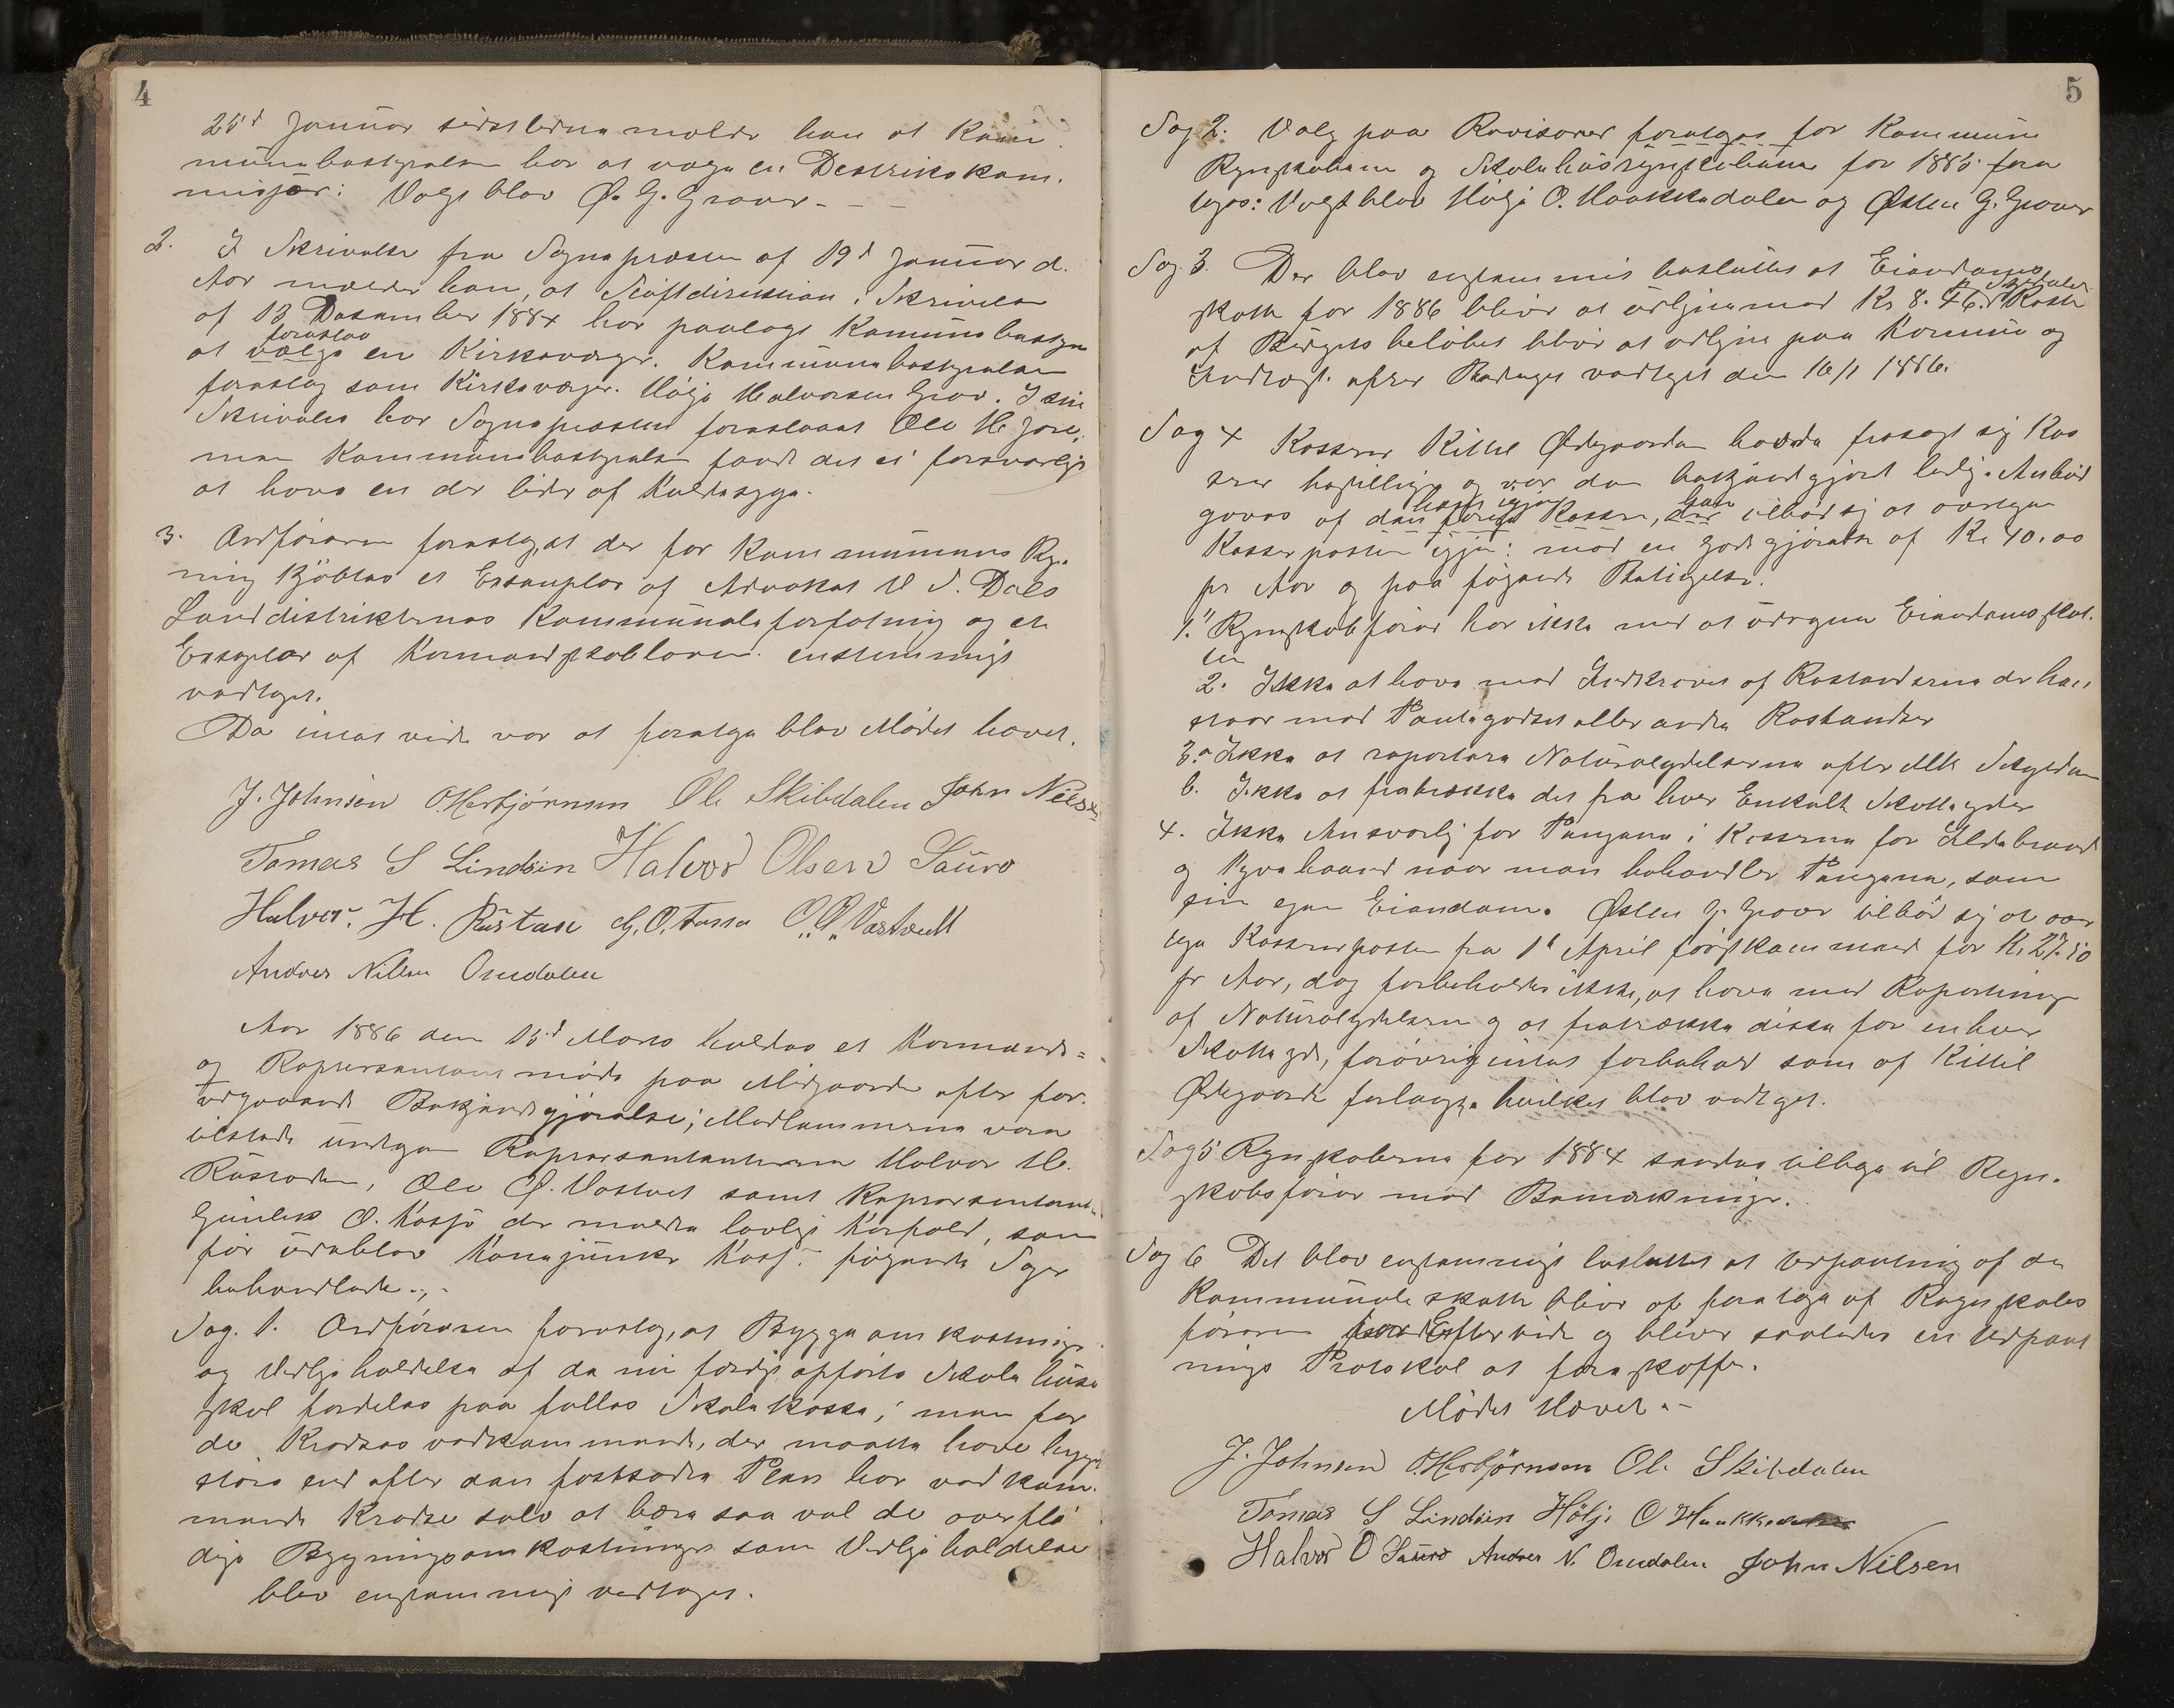 4
25d Januar sidstledne melder han at Kom
munebestyrelsen har at vælge en Destriktskom.
misjær: Valgt blev Ø. G. Graver - - -
2. I Skrivelse fra Sognepræsten af 19d Januar d.
Aar melder han, at Stiftdirektion i Skrivelse
af 13 Desember 1884 har paalagt Komunebestyr
foreslaa
at vælge en Kirkeværger. Kommunebestyrelsen
foreslog som Kirkeværger. Hölje Halvorsen Grav. I sin
Skrivelse har Sognepresten foreslaaet Ole H Jore,
men Kommunebestyrelsen fandt det ei forsvarligt
at have en der lider af Kuldesyge.
3. Ordföreren foreslog, at der for Kommunens Reg.
ning kjöbtes et Eksemplar af Advokat H J. Dals
Landdistrikternes Kommunaleforfatning og et
Eksemplar af Formandskabloven. enstemmigt
vedtaget.
Da intet vidre var at foretage blev Mödet hævet.
J. Johnsen O. Herbjörnsen Ole Skibdalen John Nilsen
Tomas S Lindsin Halvor Olsen Sauro
Halvor. H. Rustase G. O. Fosso O. O. Vastveit
Andres Nilsen Omdalen
Aar 1886 den 15d Marts holdtes et Formands=
og Representantmöde paa Midgaarden efter for.
udgaaende Bekjendtgjörelse; Medlemmerne vare
tilstede undtagen Representanterne Halvor H.
Rustaden, Ole O. Vastveit samt Representant
Gunlek O. Kosjö der meldte lovligt Forfald, som
for udeblev Kone junke Kosj. fögende Sager
behandlede. -
Sag. 1. Ordföreren foreslog, at Byggeomkostninge
og Vedligeholdelse af de nu færdigt opförte Skolehuse
skal fordeles paa fælles Skolekasse; men for
de Kredses vedkommende, der maatte have bygge
större end efter den fastsatte Plan har vedkom.
mende Kredse selv at bære saa vel de overflö
dige Bygningsomkostninger som Vedligeholdelse
blev enstemmigt vedtaget.
5
Sag 2. Valg paa Revisorer foretages for Kommune
Regnskaberne og Skolehusregnskaberne for 1885 fore
toges: Valgt blev Hölje O. Haakkedalen og Østen G. Graver
Sag 3. Der blev enstemmit besluttet at Eiendoms
skatten for 1886 bliver at udligne med Kr 8.46. pr Skylddaler Resten
af Budgets belöbet bliver at udligne paa Formue og
Indtægt. efter Budraget vedtaget den 16/1 1886.
Sag 4 Kasserer Kittil Ødegaarden havde frasagt sig Kas
serer bestilling og var den bekjendtgjort ledig. Anbud
gaves af den forige Kasserer, han tilböd sig at overtage
Kasserposten igjen: mod en Godtgjörelse af Kr 40.00
pr Aar og paa fögende Betingelse.
1. Regnskabsförer har ikke med at udregne Eiendomsskat.
ten
2. Ikke at have med Indkrævet af Restanserne der han
staar med Pantegodset eller andre Restandser
3.a Ikke at reportere Naturalydelserne efter Mtk Skylden
b. Ikke at fratrække det fra hver Enkelt Skatteyder
4. Ikke Ansvarlig for Pengene i Kassen for Ildebrand
og Tyvehaand naar man behandler Pengene, som
sin egen Eiendom. Østen G. Graver tilböd sig at over
tage Kassererposten fra 1d April förstkommende for Kr 27.50
pr Aar, dog forbeholdtes ikke, at have med Reportering
af Naturalydelserne og at fratrække disse for enhver
Skatteyde, forövrigt intet forbehold som af Kittil
Ødegaarden forlangte hvilket blev vedtaget.
Sag 5 Regnskaberne for 1884 sendes tilbage til Regn.
skabsförer med Bemærkninger.
Sag 6 Det blev enstemmigt besluttet at Udpantning af de
Kommunale skatter bliver at foretage af Regnskabs
föreren for Eftertiden og bliver saaledes en Udpant
nings Protokol at foreskaffe.
Mödet Hævet. -
J. Johnsen O. Herbjörnsen Ole Skibdalen
Tomas S Lindsin Hölje O Haakkedalen
Halvor O Sauro Andres N. Omdalen John Nilsen